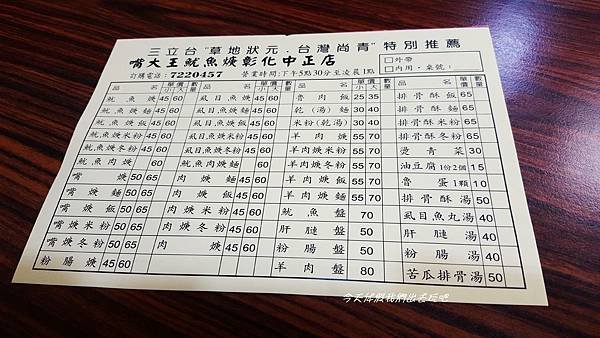 三立台"草地狀元．台灣尚青"特別推薦
嘴大王魷魚焿彰化中正店
訂購電話：7220457 營業時間：下午5點30分至凌晨1點
□外帶
□內用，桌號：
品名 單價 小 大 數量 品名 單價 小 大 數量 品名 單價 小 大 數量 品名 單價 數量
魷魚焿 45 60 虱目魚焿 45 60 魯肉飯 25 35 排骨酥飯 65
魷魚焿麵 45 60 虱目魚焿麵 45 60 乾(湯)麵 30 40 排骨酥麵 65
魷魚焿飯 45 60 虱目魚焿飯 45 60 米粉(乾湯) 30 40 排骨酥米粉 65
魷魚焿米粉 45 60 虱目魚焿米粉 45 60 羊肉焿 55 70 排骨酥冬粉 65
魷魚焿冬粉 45 60 虱目魚焿冬粉 45 60 羊肉焿米粉 55 70 燙青菜 30
魷魚肉焿 60 魷魚肉焿麵 60 羊肉焿冬粉 55 70 油豆腐1份2個 15
嘴焿 50 65 肉焿麵 45 60 羊肉焿飯 55 70 魯蛋1顆 10
嘴焿麵 50 65 肉焿飯 45 60 羊肉焿麵 55 70 排骨酥湯 50
嘴焿飯 50 65 肉焿米粉 45 60 魷魚盤 70 虱目魚丸湯 40
嘴焿米粉 50 65 肉焿冬粉 45 60 肝腱盤 50 肝腱湯 40
嘴焿冬粉 50 65 肉焿 45 60 粉腸盤 50 粉腸湯 40
粉腸焿 45 60 羊肉盤 80 苦瓜排骨湯 50
今天休假我們出去玩吧